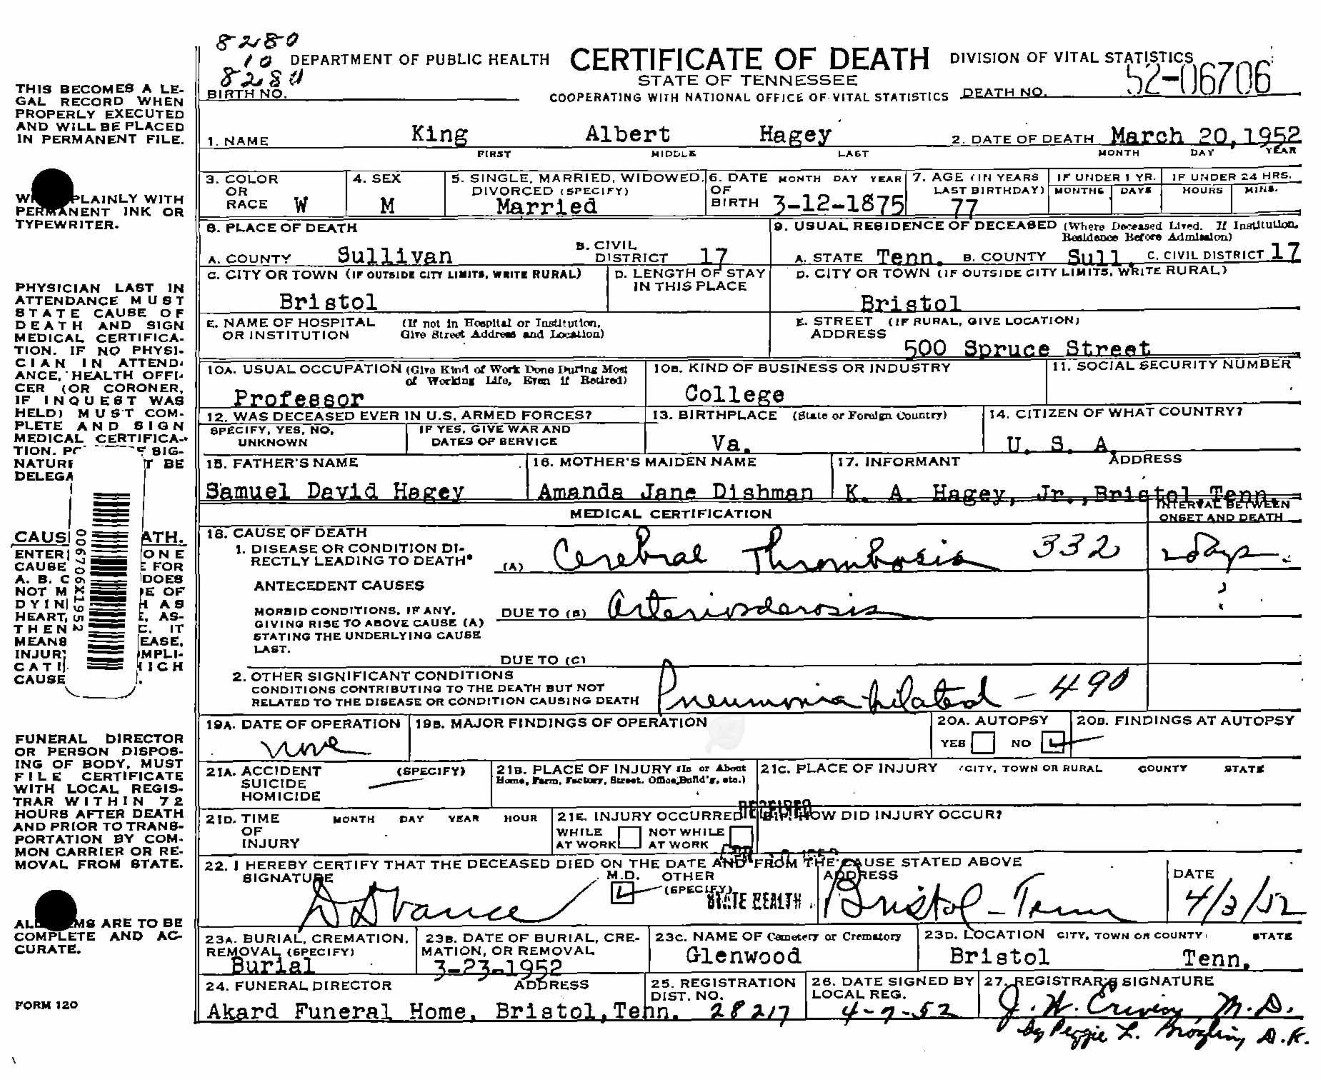 8280
10 DEPARTMENT OF PUBLIC HEALTH CERTIFICATE OF DEATH DIVISION OF VITAL STATISTICS
8280 STATE OF TENNESSEE 52-06706
BIRTH NO. COOPERATING WITH NATIONAL OFFICE OF VITAL STATISTICS DEATH NO.
1. NAME King Albert Hagey 2. DATE OF DEATH March 20, 1952
FIRST MIDDLE LAST MONTH DAY YEAR
3. COLOR OR RACE W
4. SEX M
5. SINGLE, MARRIED, WIDOWED, DIVORCED (SPECIFY) Married
6. DATE OF BIRTH MONTH DAY YEAR 3-12-1875
7. AGE (IN YEARS LAST BIRTHDAY) 77
IF UNDER 1 YR. MONTHS DAYS
IF UNDER 24 HRS. HOURS MINS.
8. PLACE OF DEATH
A. COUNTY Sullivan B. CIVIL DISTRICT 17
9. USUAL RESIDENCE OF DECEASED (Where Deceased Lived. If Institution, Residence Before Admission)
A. STATE Tenn. B. COUNTY Sull. C. CIVIL DISTRICT 17
C. CITY OR TOWN (IF OUTSIDE CITY LIMITS, WRITE RURAL) Bristol
D. LENGTH OF STAY IN THIS PLACE
D. CITY OR TOWN (IF OUTSIDE CITY LIMITS, WRITE RURAL) Bristol
E. NAME OF HOSPITAL OR INSTITUTION (If not in Hospital or Institution, Give Street Address and Location)
E. STREET ADDRESS (IF RURAL, GIVE LOCATION) 500 Spruce Street
10A. USUAL OCCUPATION (Give Kind of Work Done During Most of Working Life, Even if Retired) Professor
10B. KIND OF BUSINESS OR INDUSTRY College
11. SOCIAL SECURITY NUMBER
12. WAS DECEASED EVER IN U.S. ARMED FORCES?
SPECIFY, YES, NO, UNKNOWN
IF YES, GIVE WAR AND DATES OF SERVICE
13. BIRTHPLACE (State or Foreign Country) Va.
14. CITIZEN OF WHAT COUNTRY? U. S. A.
15. FATHER'S NAME Samuel David Hagey
16. MOTHER'S MAIDEN NAME Amanda Jane Dishman
17. INFORMANT ADDRESS K. A. Hagey, Jr., Bristol, Tenn.
MEDICAL CERTIFICATION
INTERVAL BETWEEN ONSET AND DEATH
18. CAUSE OF DEATH
1. DISEASE OR CONDITION DIRECTLY LEADING TO DEATH* (A) Cerebral Thrombosis 332 2 days
ANTECEDENT CAUSES
MORBID CONDITIONS, IF ANY, GIVING RISE TO ABOVE CAUSE (A) STATING THE UNDERLYING CAUSE LAST.
DUE TO (B) Arteriosclerosis ?
DUE TO (C)
2. OTHER SIGNIFICANT CONDITIONS
CONDITIONS CONTRIBUTING TO THE DEATH BUT NOT RELATED TO THE DISEASE OR CONDITION CAUSING DEATH
Pneumonia - 490
19A. DATE OF OPERATION none
19B. MAJOR FINDINGS OF OPERATION
20A. AUTOPSY YES NO
20B. FINDINGS AT AUTOPSY
21A. ACCIDENT SUICIDE HOMICIDE (SPECIFY)
21B. PLACE OF INJURY (In or About Home, Farm, Factory, Street, Office, Build'g, etc.)
21C. PLACE OF INJURY (CITY, TOWN OR RURAL COUNTY STATE
21D. TIME OF INJURY MONTH DAY YEAR HOUR
21E. INJURY OCCURRED
WHILE AT WORK NOT WHILE AT WORK
HOW DID INJURY OCCUR?
RECEIVED
STATE HEALTH
22. I HEREBY CERTIFY THAT THE DECEASED DIED ON THE DATE AND FROM THE CAUSE STATED ABOVE
SIGNATURE Vance M.D. OTHER (SPECIFY) ADDRESS Bristol - Tenn DATE 4/3/52
23A. BURIAL, CREMATION, REMOVAL (SPECIFY) Burial
23B. DATE OF BURIAL, CREMATION, OR REMOVAL 3-23-1952
23C. NAME OF Cemetery or Crematory Glenwood
23D. LOCATION CITY, TOWN OR COUNTY STATE Bristol Tenn.
24. FUNERAL DIRECTOR ADDRESS Akard Funeral Home, Bristol, Tenn.
25. REGISTRATION DIST. NO. 28217
26. DATE SIGNED BY LOCAL REG. 4-7-52
27. REGISTRAR'S SIGNATURE J. W. Erwin, M.D.
by Peggie L. D.R.
THIS BECOMES A LEGAL RECORD WHEN PROPERLY EXECUTED AND WILL BE PLACED IN PERMANENT FILE.
PLAINLY WITH PERMANENT INK OR TYPEWRITER.
PHYSICIAN LAST IN ATTENDANCE MUST STATE CAUSE OF DEATH AND SIGN MEDICAL CERTIFICATION. IF NO PHYSICIAN IN ATTENDANCE, HEALTH OFFICER (OR CORONER, IF INQUEST WAS HELD) MUST COMPLETE AND SIGN MEDICAL CERTIFICATION.
006706X1952
FUNERAL DIRECTOR OR PERSON DISPOSING OF BODY, MUST FILE CERTIFICATE WITH LOCAL REGISTRAR WITHIN 72 HOURS AFTER DEATH AND PRIOR TO TRANSPORTATION BY COMMON CARRIER OR REMOVAL FROM STATE.
ARE TO BE COMPLETE AND ACCURATE.
FORM 120